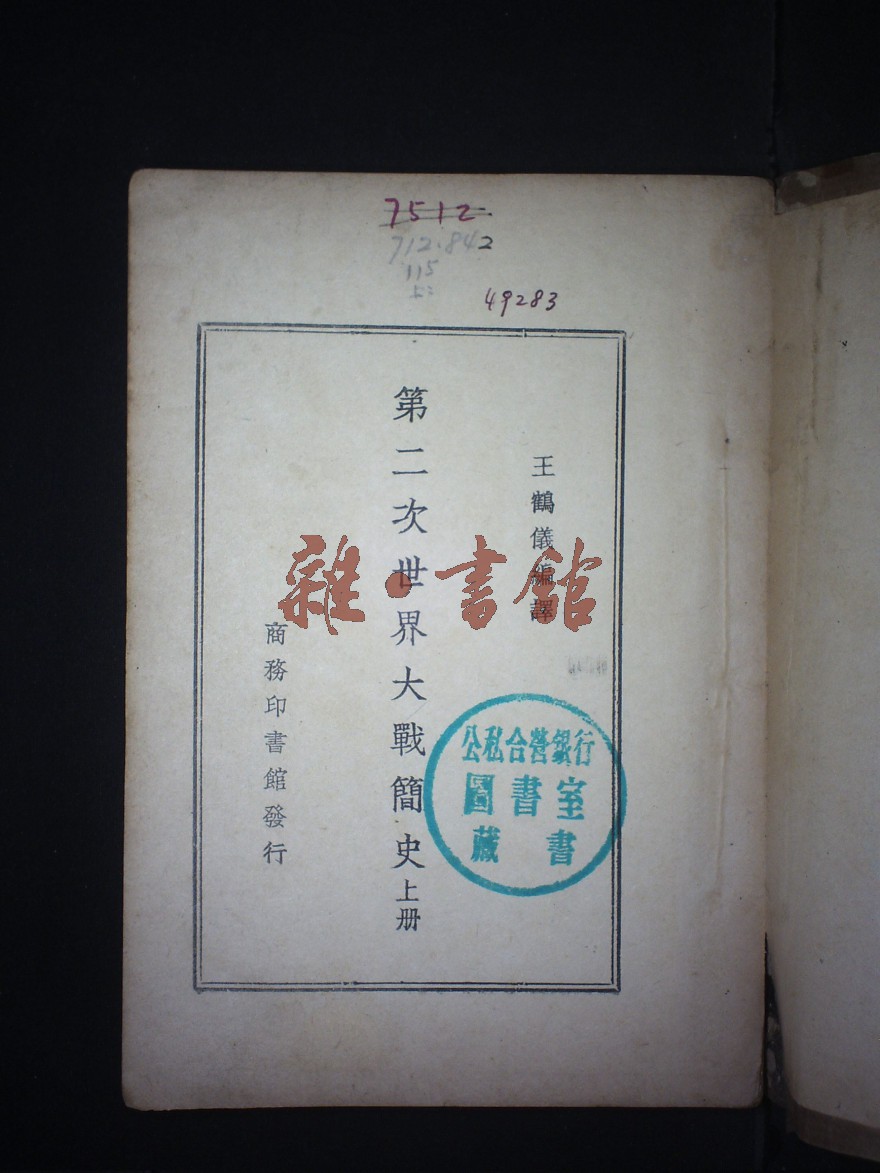 7512
712.842
115
49283
王鶴儀編譯
第二次世界大戰簡史上册
商務印書館發行
雜·書館
公私合營銀行
圖書室
藏書